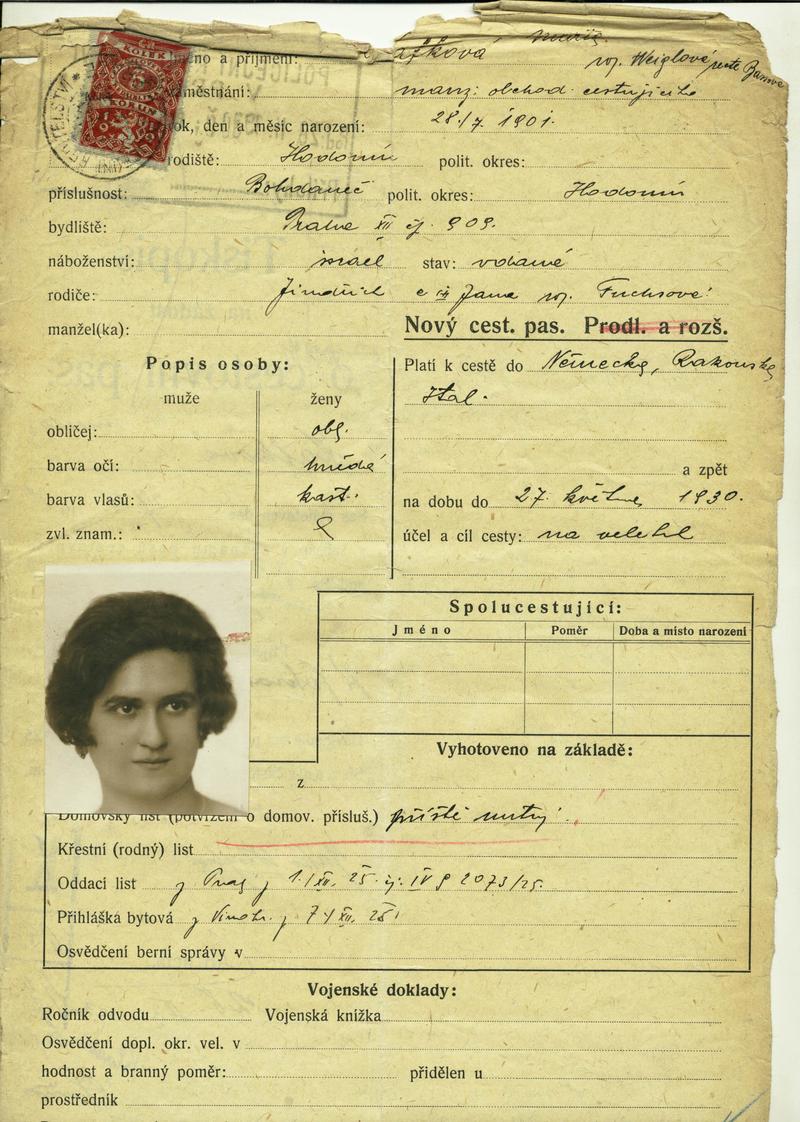 jméno a příjmení:
roz. Weiglová recte
zaměstnání: manž. obchod. cestujícího
rok, den a měsíc narození: 28./7. 1901.
rodiště: Hodonín polit. okres:
příslušnost: Bohdaneč polit. okres: Hodonín
bydliště: Praha XII čj. 909.
náboženství: israel stav: vdaná
rodiče: Jindřich a Jana roz. Fuchsová
manžel(ka):
Nový cest. pas. Prodl. a rozš.
Popis osoby:
muže ženy
Platí k cestě do Německa, Rakouska,
Ital.
obličej: obl.
barva očí: hnědé
a zpět
barva vlasů: kašt.
na dobu do 27. května 1930.
zvl. znam.:
účel a cíl cesty: na veletrh
Spolucestující:
Jméno Poměr Doba a místo narození
Vyhotoveno na základě:
z
Domovský list (potvrzení o domov. přísluš.) příště nutný
Křestní (rodný) list
Oddací list z Prahy z 1./XII. 25. čj. IV 2073/25.
Přihláška bytová z Vinohr. z 7/XII. 25
Osvědčení berní správy v
Vojenské doklady:
Ročník odvodu Vojenská knížka
Osvědčení dopl. okr. vel. v
hodnost a branný poměr: přidělen u
prostředník